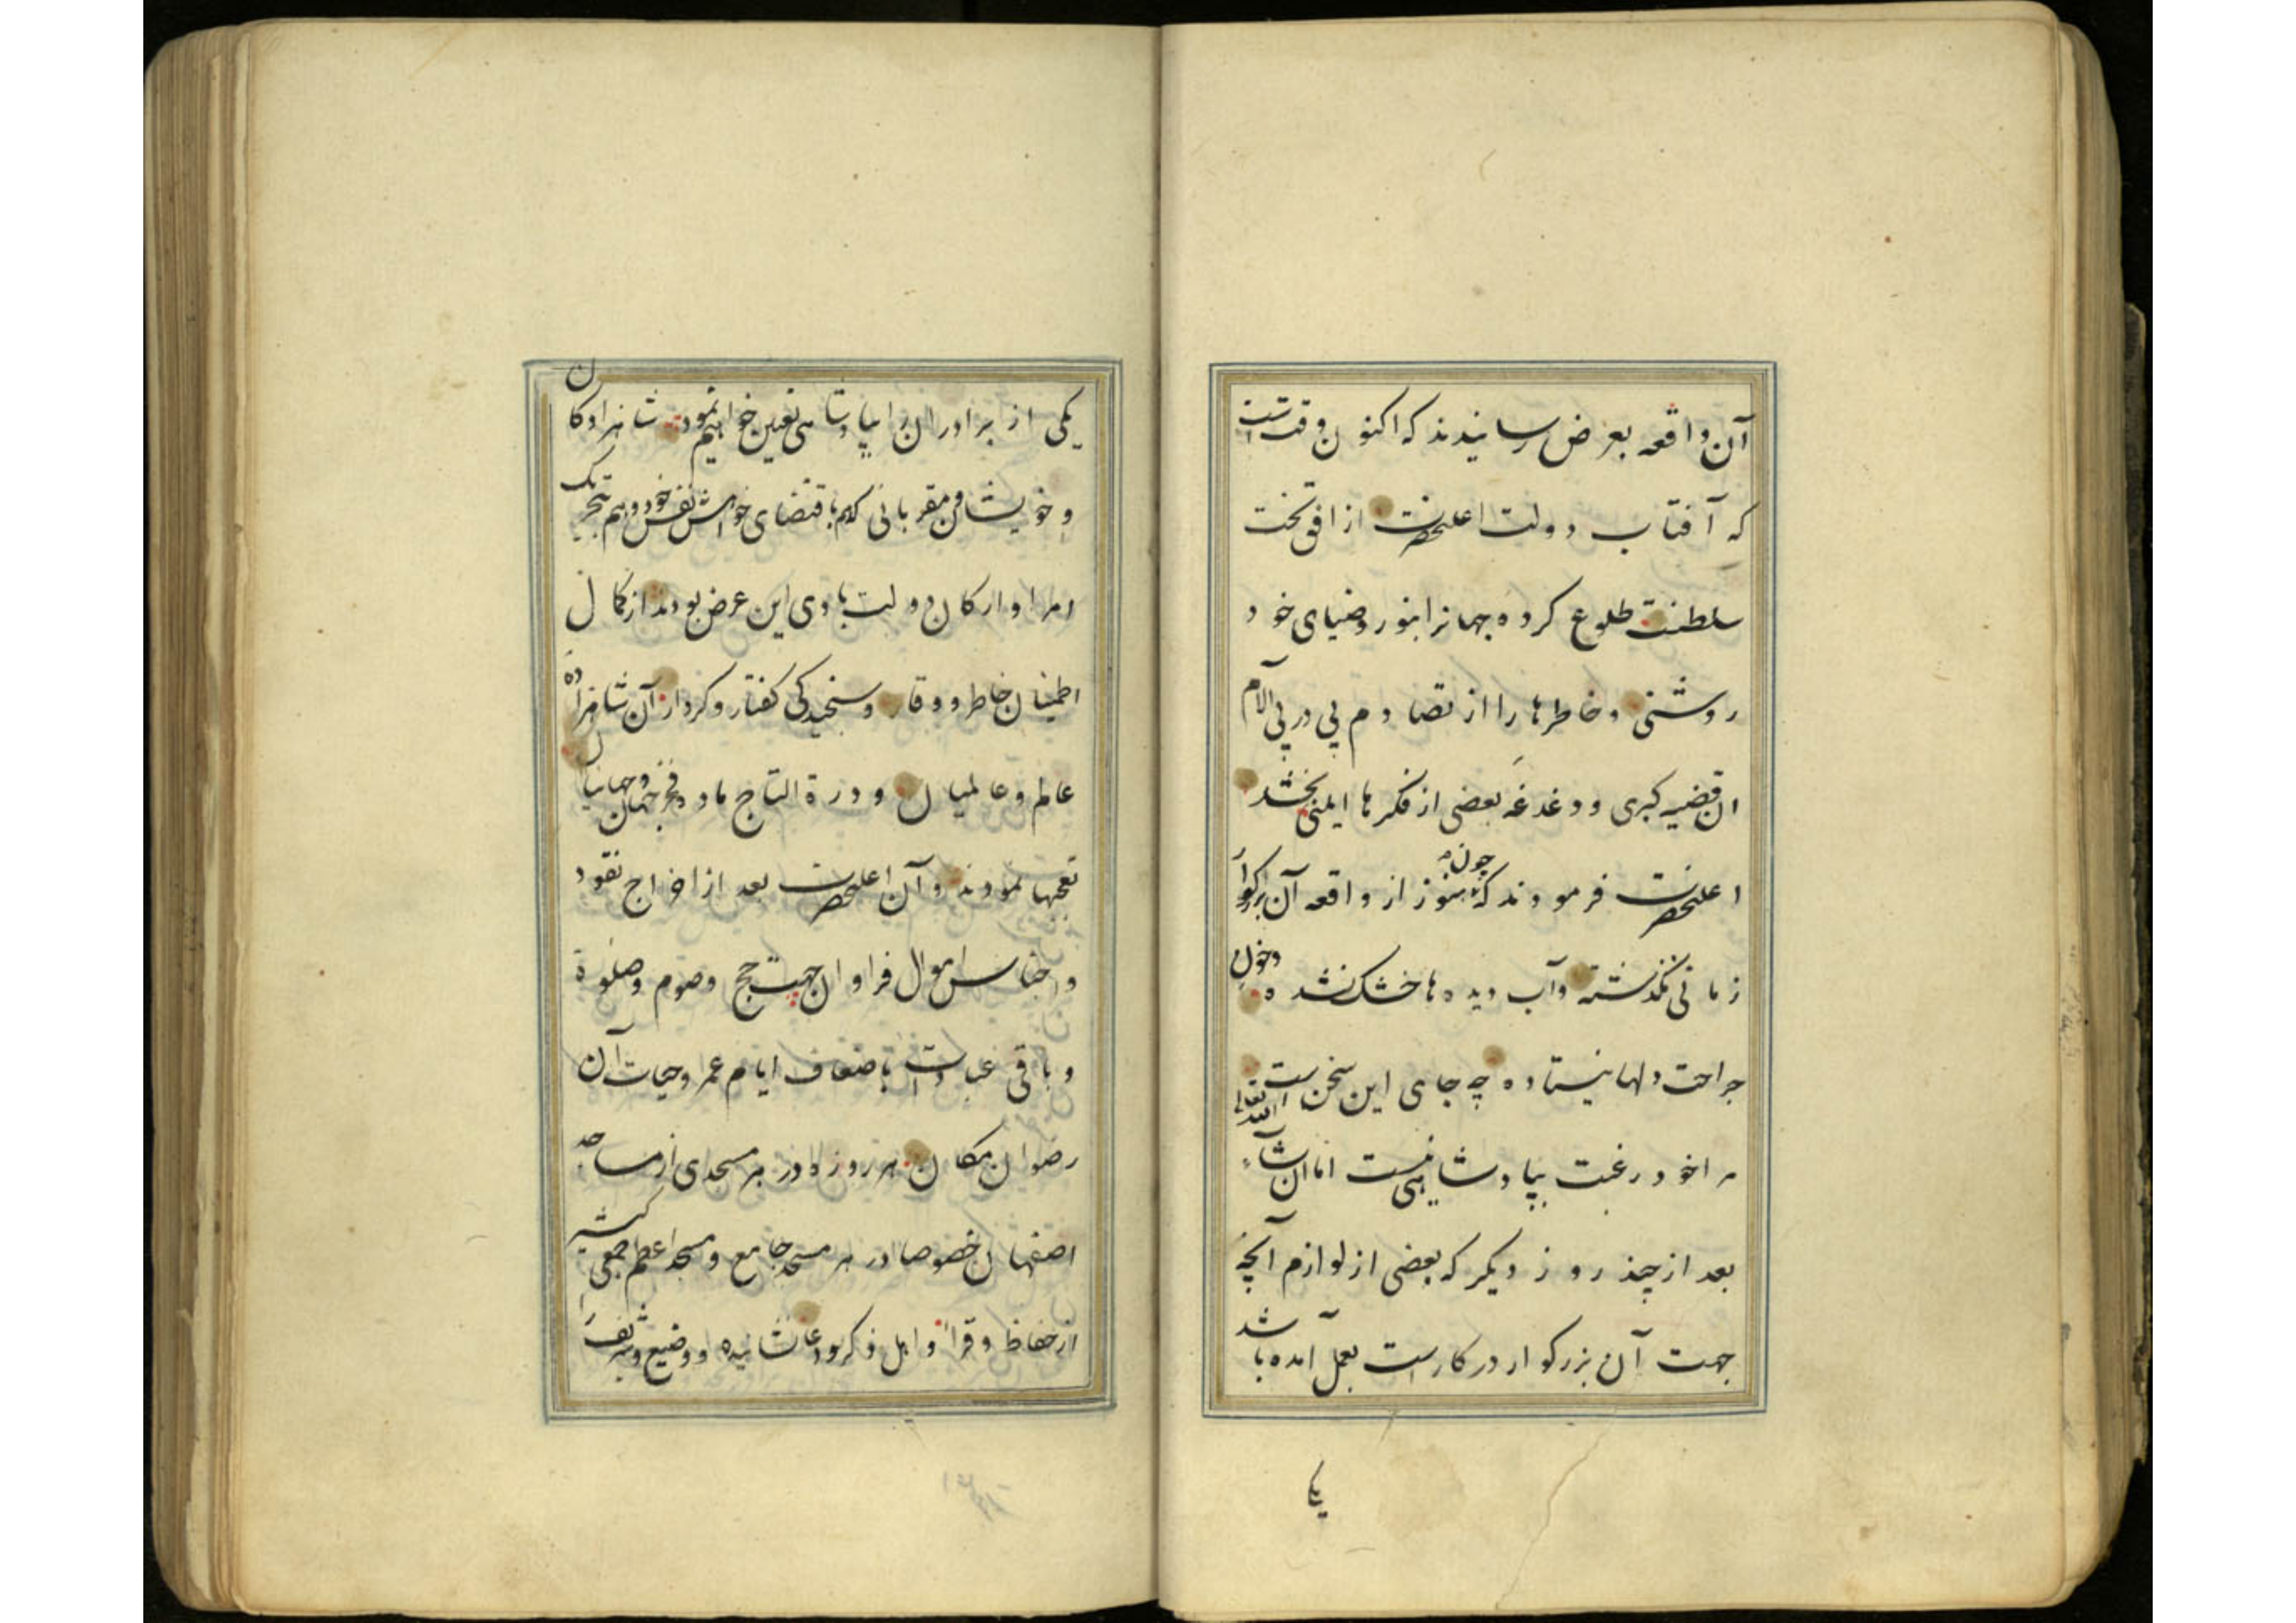 آن واقعه بعرض رسانیدند که اکنون وقتست
که آفتاب دولت اعلیحضرت از افق تخت
سلطنت طلوع کرده جهانرا بنور و ضیای خود
روشنی و خاطرها را از تصادم پی در پی آلام
ان قضیه کبری و دغدغه بعضی از فکرها ایمنی بخشد
اعلیحضرت فرمودند که چون هنوز از واقعه آن بزرکوار
زمانی نکذشته و آب دیده ها خشک نشده و خون
جراحت دلها نیستاده چه جای این سخن است
مرا خود رغبت بپادشاهی نیست اما ان شاء الله تعالی
بعد از چند روز دیکر که بعضی از لوازم آنچه
جهت آن بزرکوار در کار است بعمل آمده باشد
یکی
یکی از برادران را بپادشاهی تعیین خواهیم نمود شاهزادکان
و خویشان و مقربانی که هم باقتضای خواهش نفس خود و هم بتحریک
امرا و ارکان دولت بادی این عرض بودند از کمال
اطمینان خاطر و وقار و سنجیدکی کفتار و کردار آن شاهزاده
عالم و عالمیان و درة التاج مادر و فخر جهان و جهانیان
تعجبها نمودند و آن اعلیحضرت بعد از اخراج نقود
و اجناس اموال فراوان جهت حج و صوم و صلوة
و باقی عبادات باضعاف ایام عمر و حیات آن
رضوان مکان هر روزه در هر مسجدی از مساجد
اصفهان خصوصا در هر مسجد جامع و مسجد اعظم جمعی کثیر
از حفاظ و قرا و اهل ذکر و دعا نشانیده و وضیع و شریف را